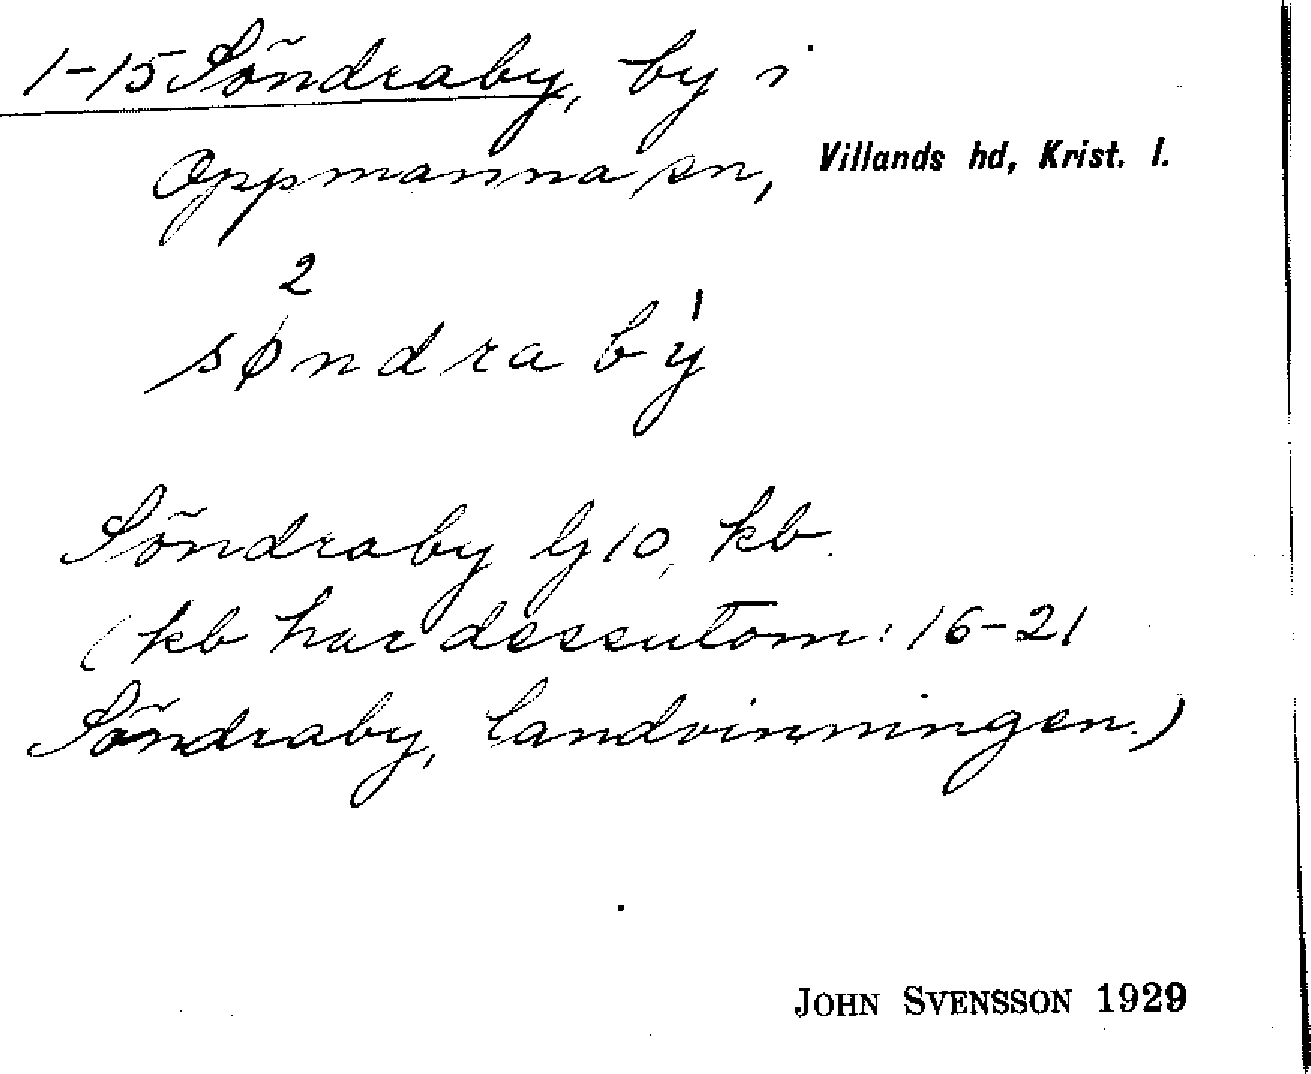 1-15 Söndraby, by i
Oppmanna sn, Villands hd, Krist. l.
2
søndraby̍
Söndraby lj 10, kb.
(kb har dessutom: 16-21
Söndraby, landvinningen.)
JOHN SVENSSON 1929